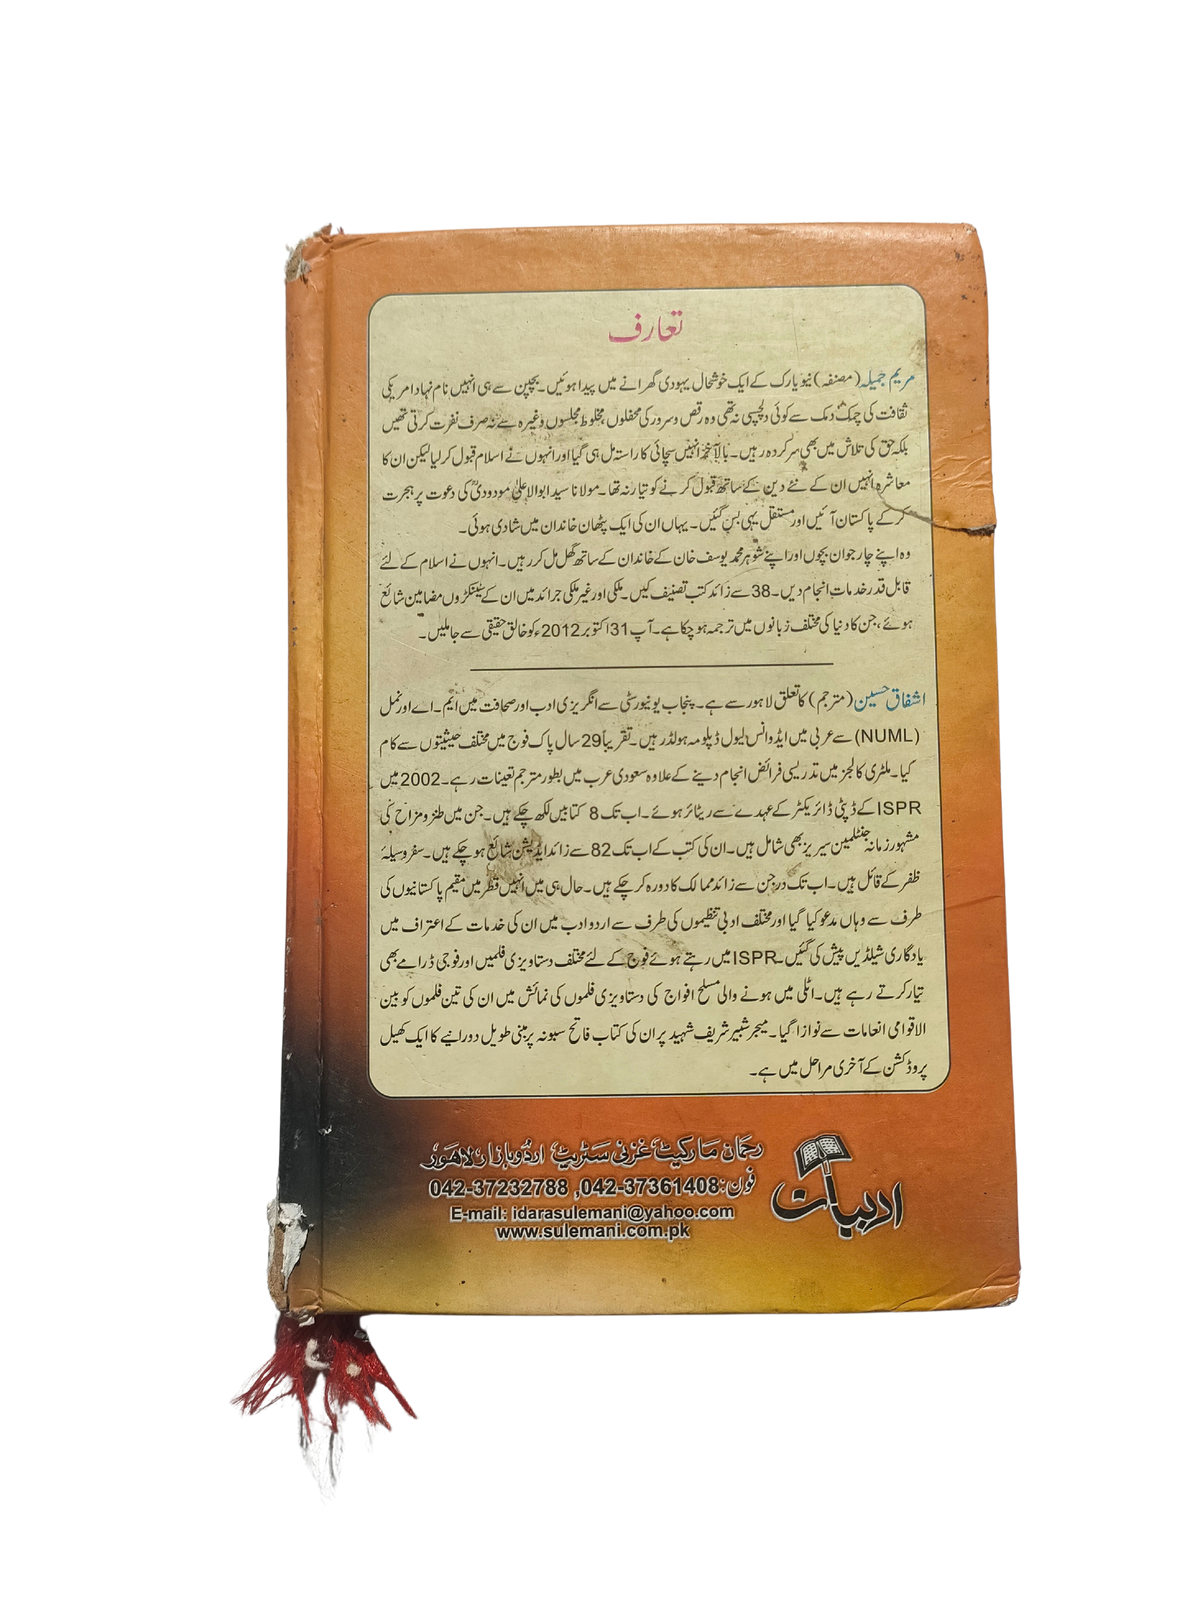 تعارف
مریم جمیلہ (مصنفہ) نیویارک کے ایک خوشحال یہودی گھرانے میں پیدا ہوئیں۔ بچپن سے ہی انہیں نام نہاد امریکی
ثقافت کی چمک دمک سے کوئی دلچسپی نہ تھی وہ رقص و سرور کی محفلوں، مخلوط مجلسوں وغیرہ سے نہ صرف نفرت کرتی تھیں
بلکہ حق کی تلاش میں بھی سرگرداں رہیں۔ بالآخر انہیں سچائی کا راستہ مل ہی گیا اور انہوں نے اسلام قبول کر لیا لیکن ان کا
معاشرہ انہیں ان کے نئے دین کے ساتھ قبول کرنے کو تیار نہ تھا۔ مولانا سید ابوالاعلیٰ مودودیؒ کی دعوت پر ہجرت
کر کے پاکستان آئیں اور مستقل یہی بس گئیں۔ یہاں ان کی ایک پٹھان خاندان میں شادی ہوئی۔
وہ اپنے چار جوان بچوں اور اپنے شوہر محمد یوسف خان کے خاندان کے ساتھ گھل مل کر رہیں۔ انہوں نے اسلام کے لئے
قابل قدر خدمات انجام دیں۔ 38 سے زائد کتب تصنیف کیں۔ ملکی اور غیر ملکی جرائد میں ان کے سینکڑوں مضامین شائع
ہوئے، جن کا دنیا کی مختلف زبانوں میں ترجمہ ہو چکا ہے۔ آپ 31 اکتوبر 2012ء کو خالق حقیقی سے جا ملیں۔
اشفاق حسین (مترجم) کا تعلق لاہور سے ہے۔ پنجاب یونیورسٹی سے انگریزی ادب اور صحافت میں ایم۔ اے اور نمل
(NUML) سے عربی میں ایڈوانس لیول ڈپلومہ ہولڈر ہیں۔ تقریباً 29 سال پاک فوج میں مختلف حیثیتوں سے کام
کیا۔ ملٹری کالجز میں تدریسی فرائض انجام دینے کے علاوہ سعودی عرب میں بطور مترجم تعینات رہے۔ 2002 میں
ISPR کے ڈپٹی ڈائریکٹر کے عہدے سے ریٹائر ہوئے۔ اب تک 8 کتابیں لکھ چکے ہیں۔ جن میں طنز و مزاح کی
مشہور زمانہ جنٹلمین سیریز بھی شامل ہیں۔ ان کی کتب کے اب تک 82 سے زائد ایڈیشن شائع ہو چکے ہیں۔ سفر وسیلۂ
ظفر کے قائل ہیں۔ اب تک درجن سے زائد ممالک کا دورہ کر چکے ہیں۔ حال ہی میں انہیں قطر میں مقیم پاکستانیوں کی
طرف سے وہاں مدعو کیا گیا اور مختلف ادبی تنظیموں کی طرف سے اردو ادب میں ان کی خدمات کے اعتراف میں
یادگاری شیلڈیں پیش کی گئیں۔ ISPR میں رہتے ہوئے فوج کے لئے مختلف دستاویزی فلمیں اور فوجی ڈرامے بھی
تیار کرتے رہے ہیں۔ اٹلی میں ہونے والی مسلح افواج کی دستاویزی فلموں کی نمائش میں ان کی تین فلموں کو بین
الاقوامی انعامات سے نوازا گیا۔ میجر شبیر شریف شہید پر ان کی کتاب فاتح سبونہ پر مبنی طویل دورانیے کا ایک کھیل
پروڈکشن کے آخری مراحل میں ہے۔
ادبیات
رحمان مارکیٹ غزنی سٹریٹ اردو بازار لاہور
فون: 042-37361408, 042-37232788
E-mail: idarasulemani@yahoo.com
www.sulemani.com.pk